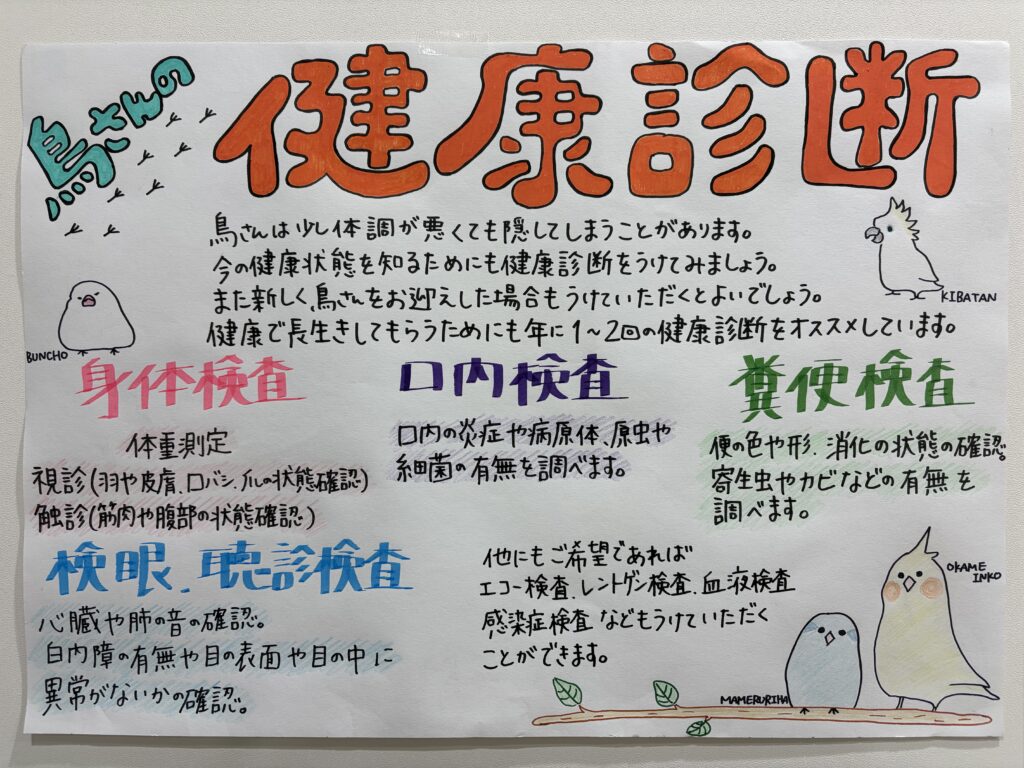 鳥さんの
健康診断
鳥さんは少し体調が悪くても隠してしまうことがあります。
今の健康状態を知るためにも健康診断をうけてみましょう。
また新しく鳥さんをお迎えした場合もうけていただくとよいでしょう。
健康で長生きしてもらうためにも年に1～2回の健康診断をオススメしています。
BUNCHO
KIBATAN
身体検査
体重測定
視診(羽や皮膚、口バシ、爪の状態確認)
触診(筋肉や腹部の状態確認)
口内検査
口内の炎症や病原体、原虫や
細菌の有無を調べます。
糞便検査
便の色や形、消化の状態の確認。
寄生虫やカビなどの有無を
調べます。
検眼、聴診検査
心臓や肺の音の確認。
白内障の有無や目の表面や目の中に
異常がないかの確認。
他にもご希望であれば
エコー検査、レントゲン検査、血液検査
感染症検査などもうけていただく
ことができます。
OKAME
INKO
MAMERURIHA